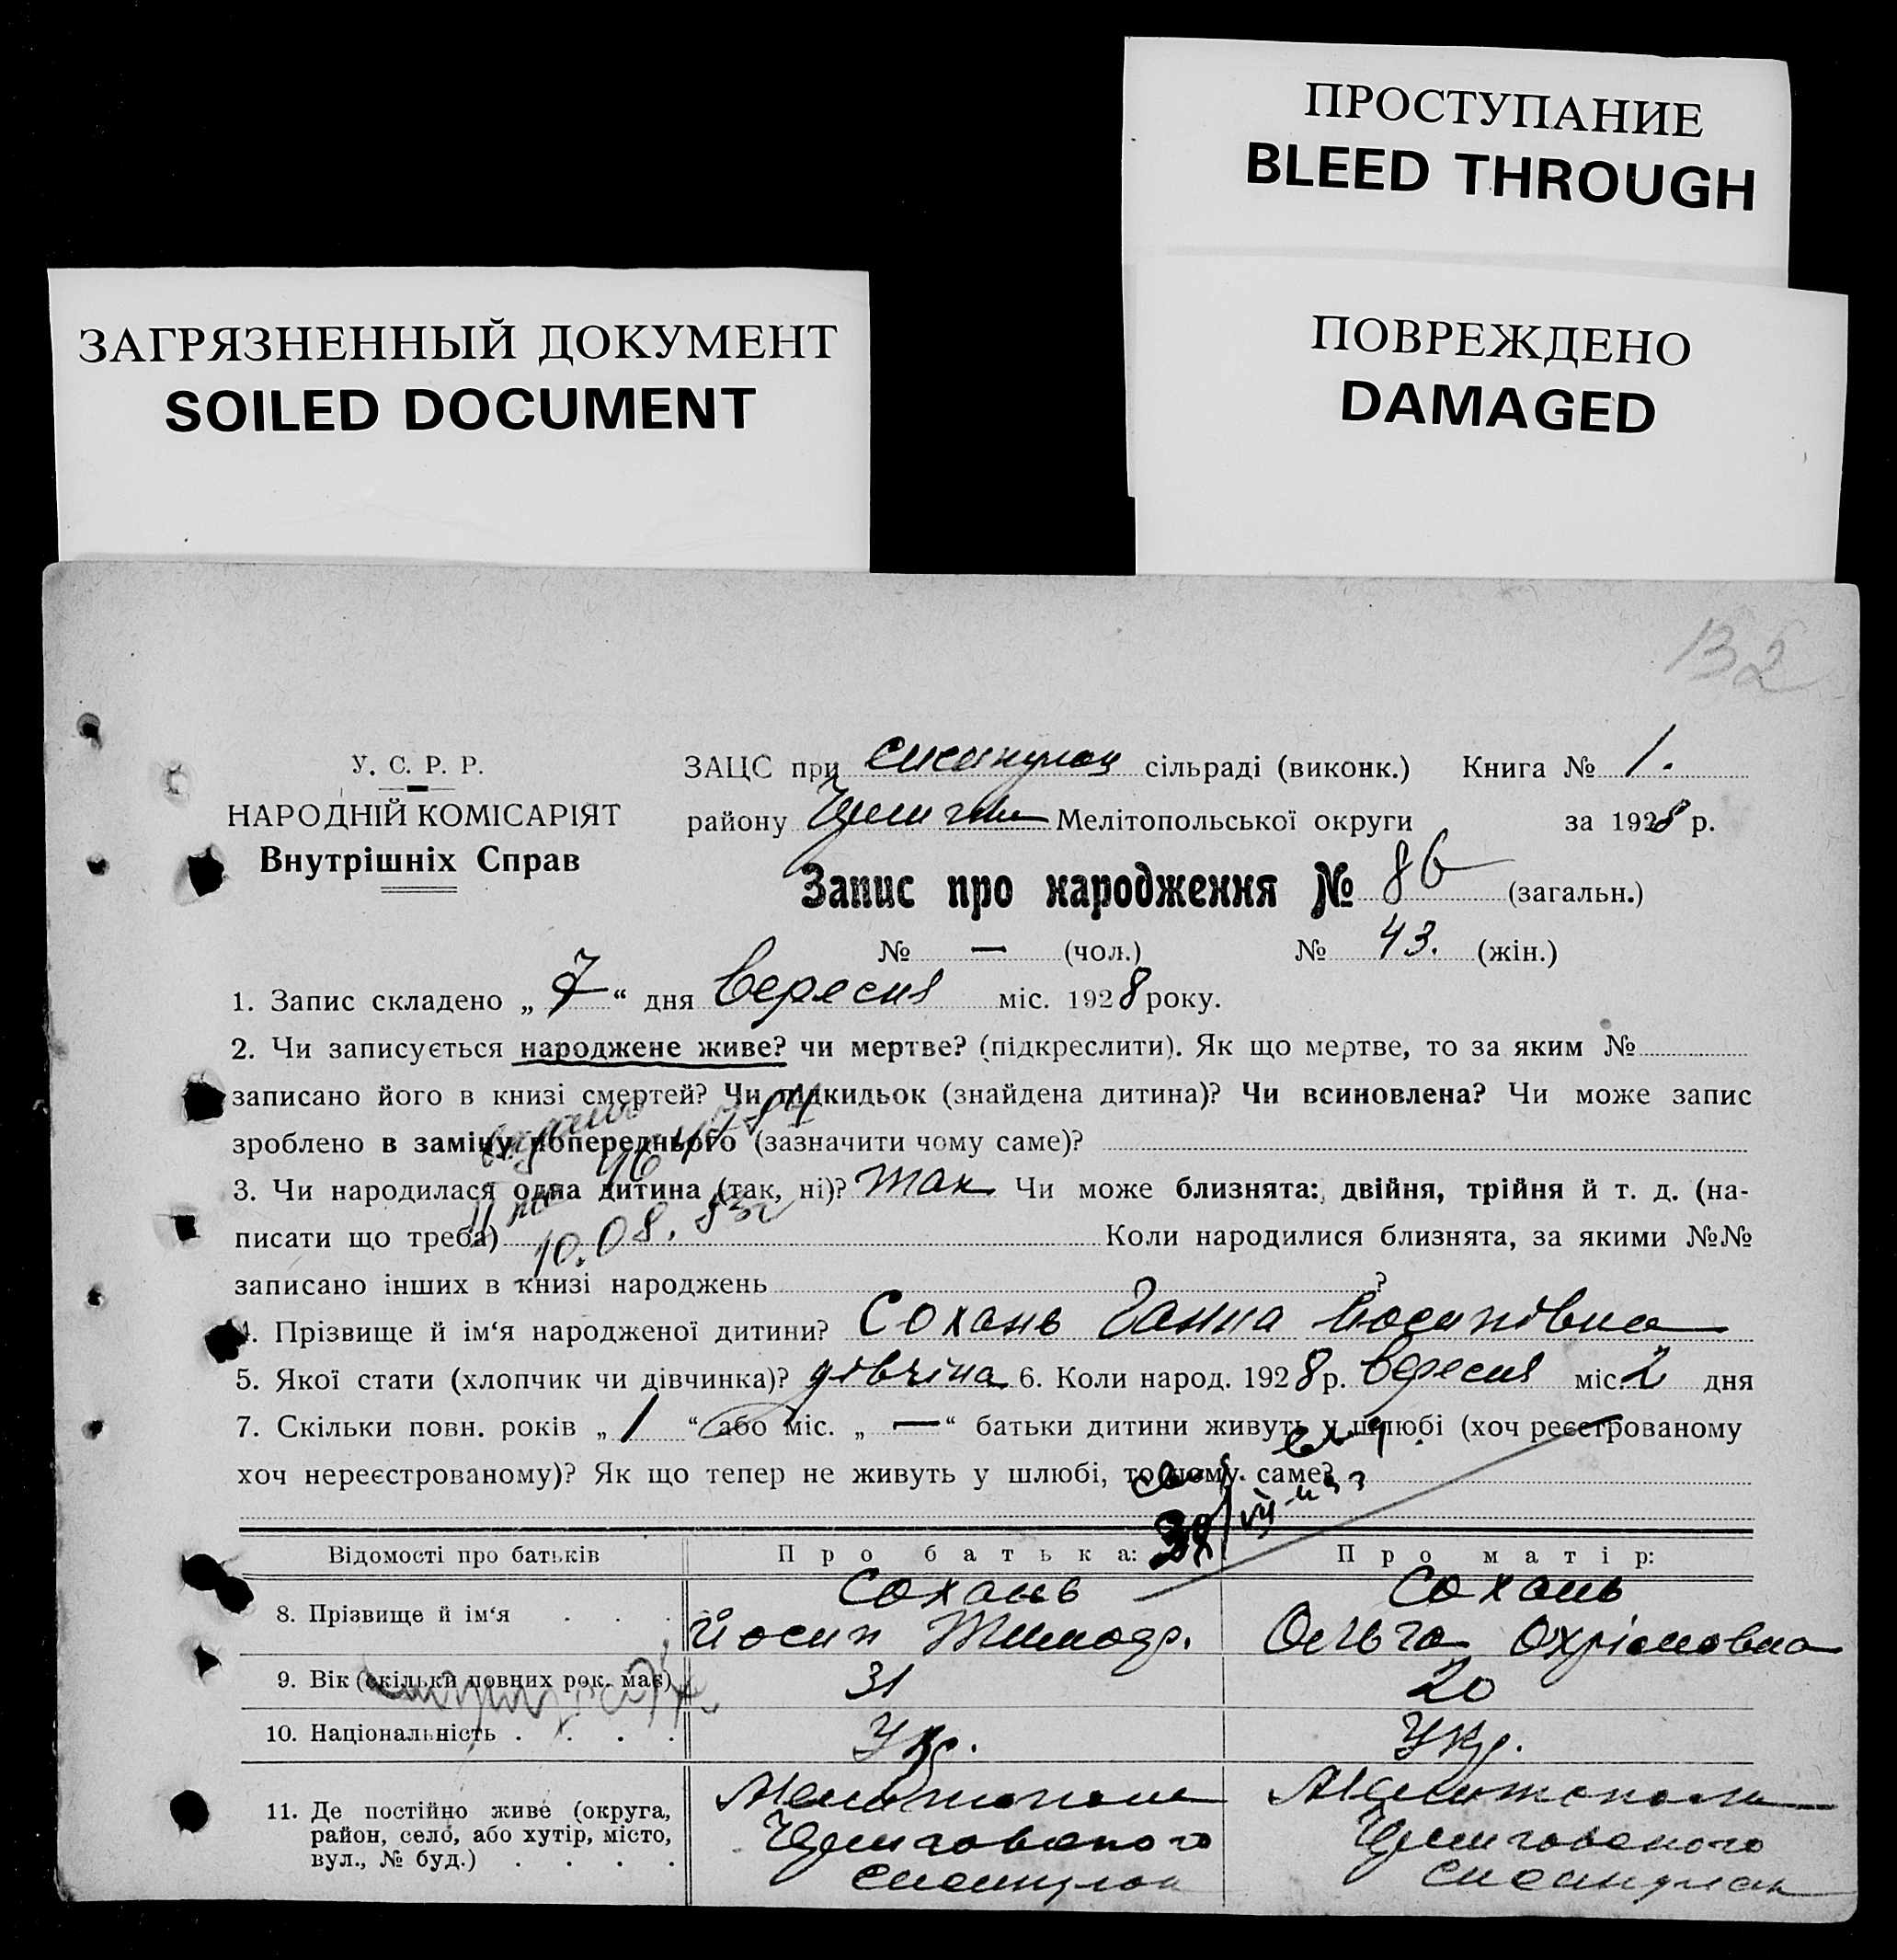 ПРОСТУПАНИЕ
BLEED THROUGH
ЗАГРЯЗНЕННЫЙ ДОКУМЕНТ
SOILED DOCUMENT
ПОВРЕЖДЕНО
DAMAGED
132
У. С. Р. Р.
НАРОДНІЙ КОМІСАРІЯТ
Внутрішніх Справ
ЗАЦС при сільраді (виконк.) Книга № 1.
району Мелітопольської округи за 1928 р.
Запис про народження № 86 (загальн.)
№ — (чол.) № 43. (жін.)
1. Запис складено „ 7 “ дня Вересня міс. 1928 року.
2. Чи записується народжене живе? чи мертве? (підкреслити). Як що мертве, то за яким №
записано його в книзі смертей? Чи підкидьок (знайдена дитина)? Чи всиновлена? Чи може запис
зроблено в заміну попереднього (зазначити чому саме)?
3. Чи народилася одна дитина (так, ні)? так Чи може близнята: двійня, трійня й т. д. (на-
писати що треба) Коли народилися близнята, за якими №№
10.08.83
записано інших в книзі народжень ?
4. Прізвище й ім‘я народженої дитини? Сохань Ганна Йосипівна
5. Якої стати (хлопчик чи дівчинка)? дівчіна 6. Коли народ. 1928 р. Вересня міс. 2 дня
7. Скільки повн. років „ 1 “ або міс. „ — “ батьки дитини живуть у шлюбі (хоч реєстрованому
хоч нереєстрованому)? Як що тепер не живуть у шлюбі, то чому саме?
Відомості про батьків Про батька: Про матір:
8. Прізвище й ім‘я . . . Сохань Йосип Сохань Ольга
9. Вік (скільки повних рок. має) 31 20
10. Національність . . . . Укр. Укр.
11. Де постійно живе (округа,
район, село, або хутір, місто,
вул., № буд.) . . . .